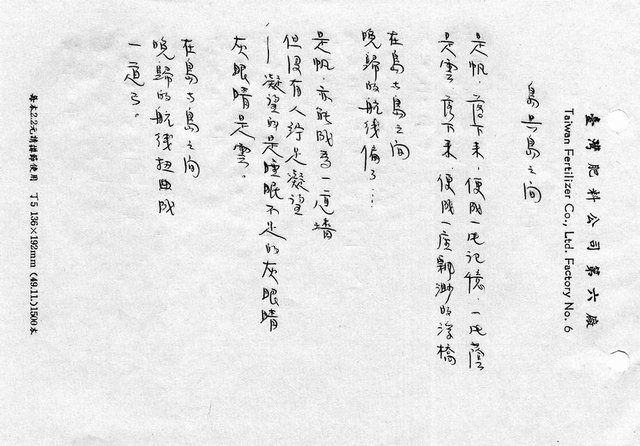 臺灣肥料公司第六廠
Taiwan Fertilizer Co., Ltd. Factory No. 6
島与島之间
是帆，落下来，便成一 记憶，一 蔭
是雲，落下来，便成一座飄渺的浮橋
在島与島之间
晚歸的航线偏了…
是帆，亦能成為一道牆
但沒有人 足凝望
—凝望的是睡眠不足的灰眼睛
灰眼睛是雲。
在島与島之间
晚歸的航线扭曲成
一道弓。
每本2.2元請撙節使用 丁5 136×192mm (49.11.)1500本